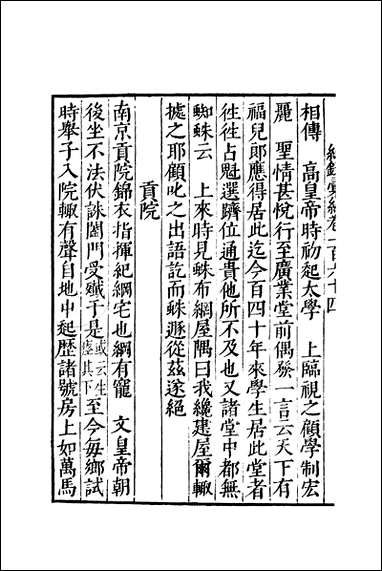 紀錄彙編卷一百六十四
相傳　高皇帝時初起太學　上臨視之顧學制宏
麗　聖情甚悅行至廣業堂前偶發一言云天下有
福兒郎應得居此迄今百四十年來學生居此堂者
徃徃占魁選躋位通貴他所不及也又諸堂中都無
蜘蛛云　上來時見蛛布網屋隅曰我纔建屋爾輙
據之耶顧叱之出語訖而蛛遯從茲遂絕
貢院
南京貢院錦衣指揮紀綱宅也綱有寵　文皇帝朝
後坐不法伏誅闔門受殱于是或云生瘞其下至今每鄉試
時舉子入院輙有聲自地中起歷諸號房上如萬馬